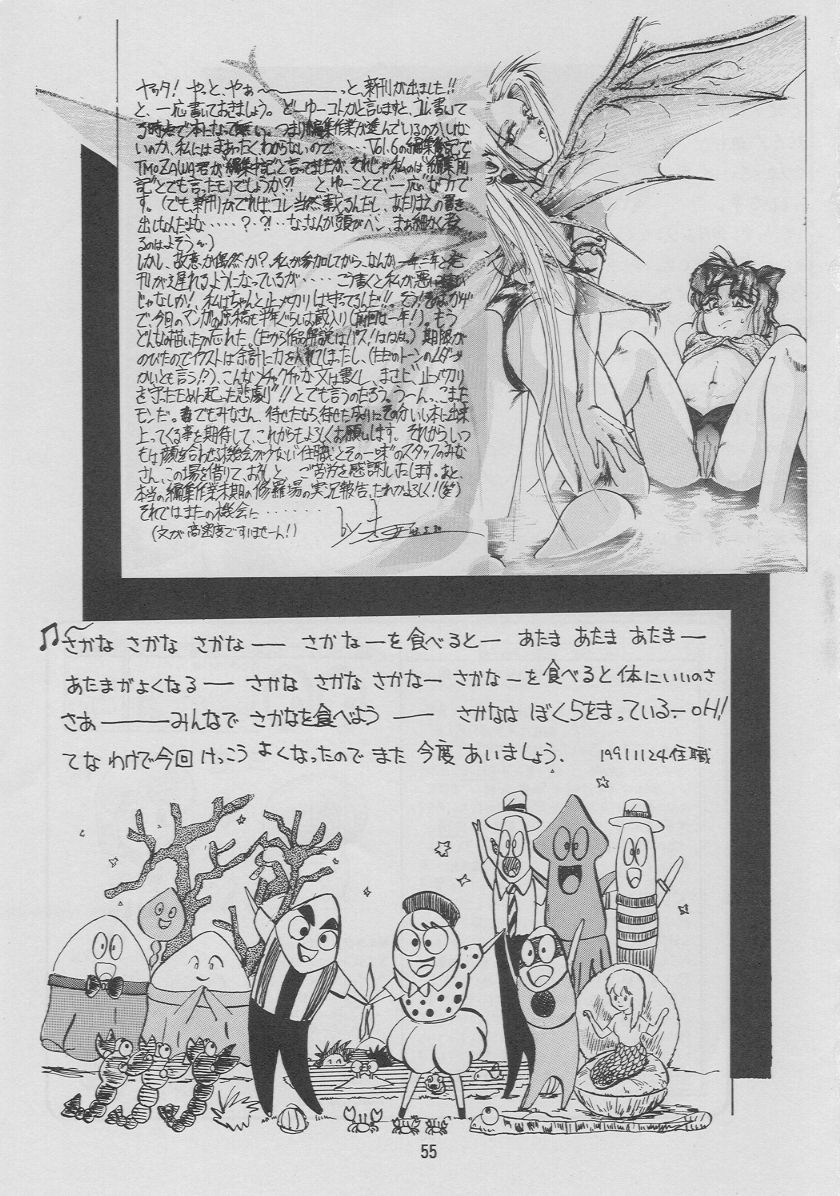 ヤッタ! やっと、やぁ〜―――っと、新刊が出ました!!
と、一応書いておきましょう。どーゆーコトかと言いますと、コレ書いて
る時点で本になって無い。つまり編集作業が進んでいるのかいない
のか、私にはまぁったくわからないので・・・・、Vol.6の編集後記で
TMOZAWA君が編集中記と言ってましたが、それじゃ私のは"編集前
記"とでも言ったモノでしょうか?! とゆーことで、一応なカンで
す。(でも新刊がでればコレ当然載るんだし、あたりまえの書き
出しなんだよな・・・・・?・?!・・なっなんか頭がヘン、まぁ細かく考え
るのはよそう)
しかし、故意か偶然か?、私が参加してから、なんか一年二年と発
刊が遅れるようになっているが・・・・・こう書くと私が悪い
じゃなしか!、私はちゃんと止メキリは守ってるんだ!!
で、今回のマンガの原稿も半年ぐらいは蔵入り(前回は一年!)。もう
どんなの描いたか忘れた、(だから作品解説はパス!) 期限が
のびたのでイラストは余計に力を入れてしまったし、(土台のトーンのムダ
かいとも言う!?)、こんなメチャクチャな文は書くし、まさに"止メ切り
を守ったために起った悲劇"!!とでも言うのだろう。うーん、こまった
モンだ。でもみなさん、待せたなら、待せた成りにそのかいし本に出来
上ってくる事を期待して、これからもよろしくお願いします。それから、いつ
もは顔を合わせる機会が少ない"住職とその一味"のスタッフのみな
さん、この場を借りて、お礼と、ご苦労を感謝いたします。あと、
本当の編集作業末期の修羅場の実況報告、だれかよろしく!(笑)
それではまたの機会に・・・・・・・・
(文が高密度ですいませーん!) by
♫〜さかな さかな さかな―― さかなーを食べるとー あたま あたま あたまー
あたまがよくなるー さかな さかな さかなー さかなーを食べると体にいいのさ
さあ―――みんなで さかなを食べよう ―― さかなは ぼくらをまっているーOH!
てな わけで今回 けっこう よくなったので また 今度 あいましょう. 19911124住職
55